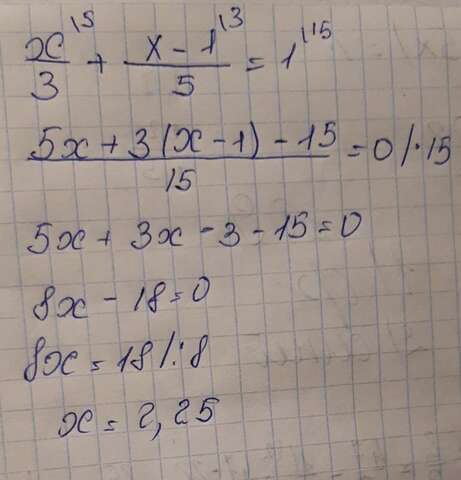 x/3^\5 + (x - 1)/5^\3 = 1^\15
(5x + 3(x - 1) - 15)/15 = 0 /·15
5x + 3x - 3 - 15 = 0
8x - 18 = 0
8x = 18 /:8
x = 2,25